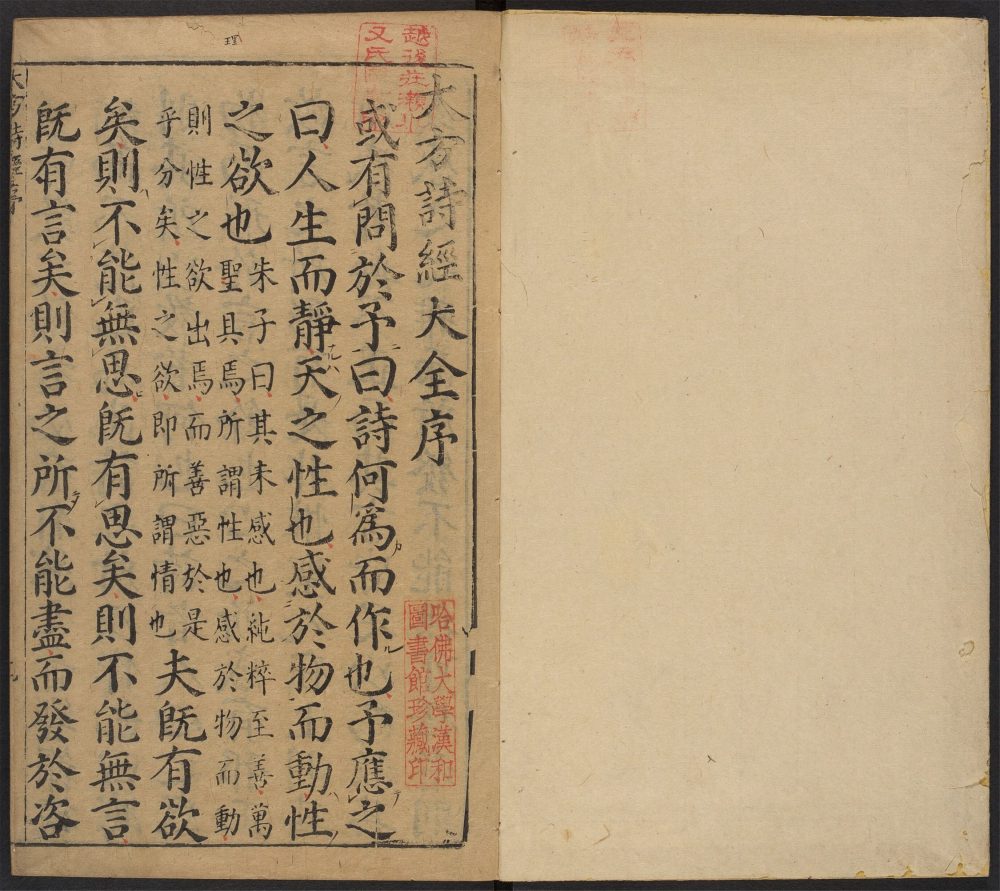 大方詩經大全序
或有問於予曰詩何爲而作也予應之
曰人生而靜天之性也感於物而動性
之欲也
朱子曰其未感也純粹至善萬
聖具焉所謂性也感於物而動
則性之欲出焉而善惡於是
乎分矣性之欲即所謂情也
夫既有欲
矣則不能無思既有思矣則不能無言
既有言矣則言之所不能盡而發於咨
大方詩經序
理
哈佛大學漢和
圖書館珍藏印